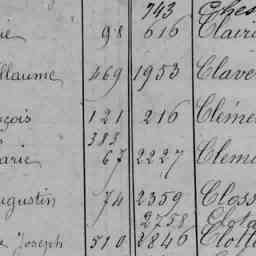 743 Ches
ie 98 616 Clair
llaume 469 1953 Clave
çois 121 216 Cléme
383
arie 67 2227 Clem
ugustin 74 2359 Closs
2758 Clota
e Joseph 510 2846